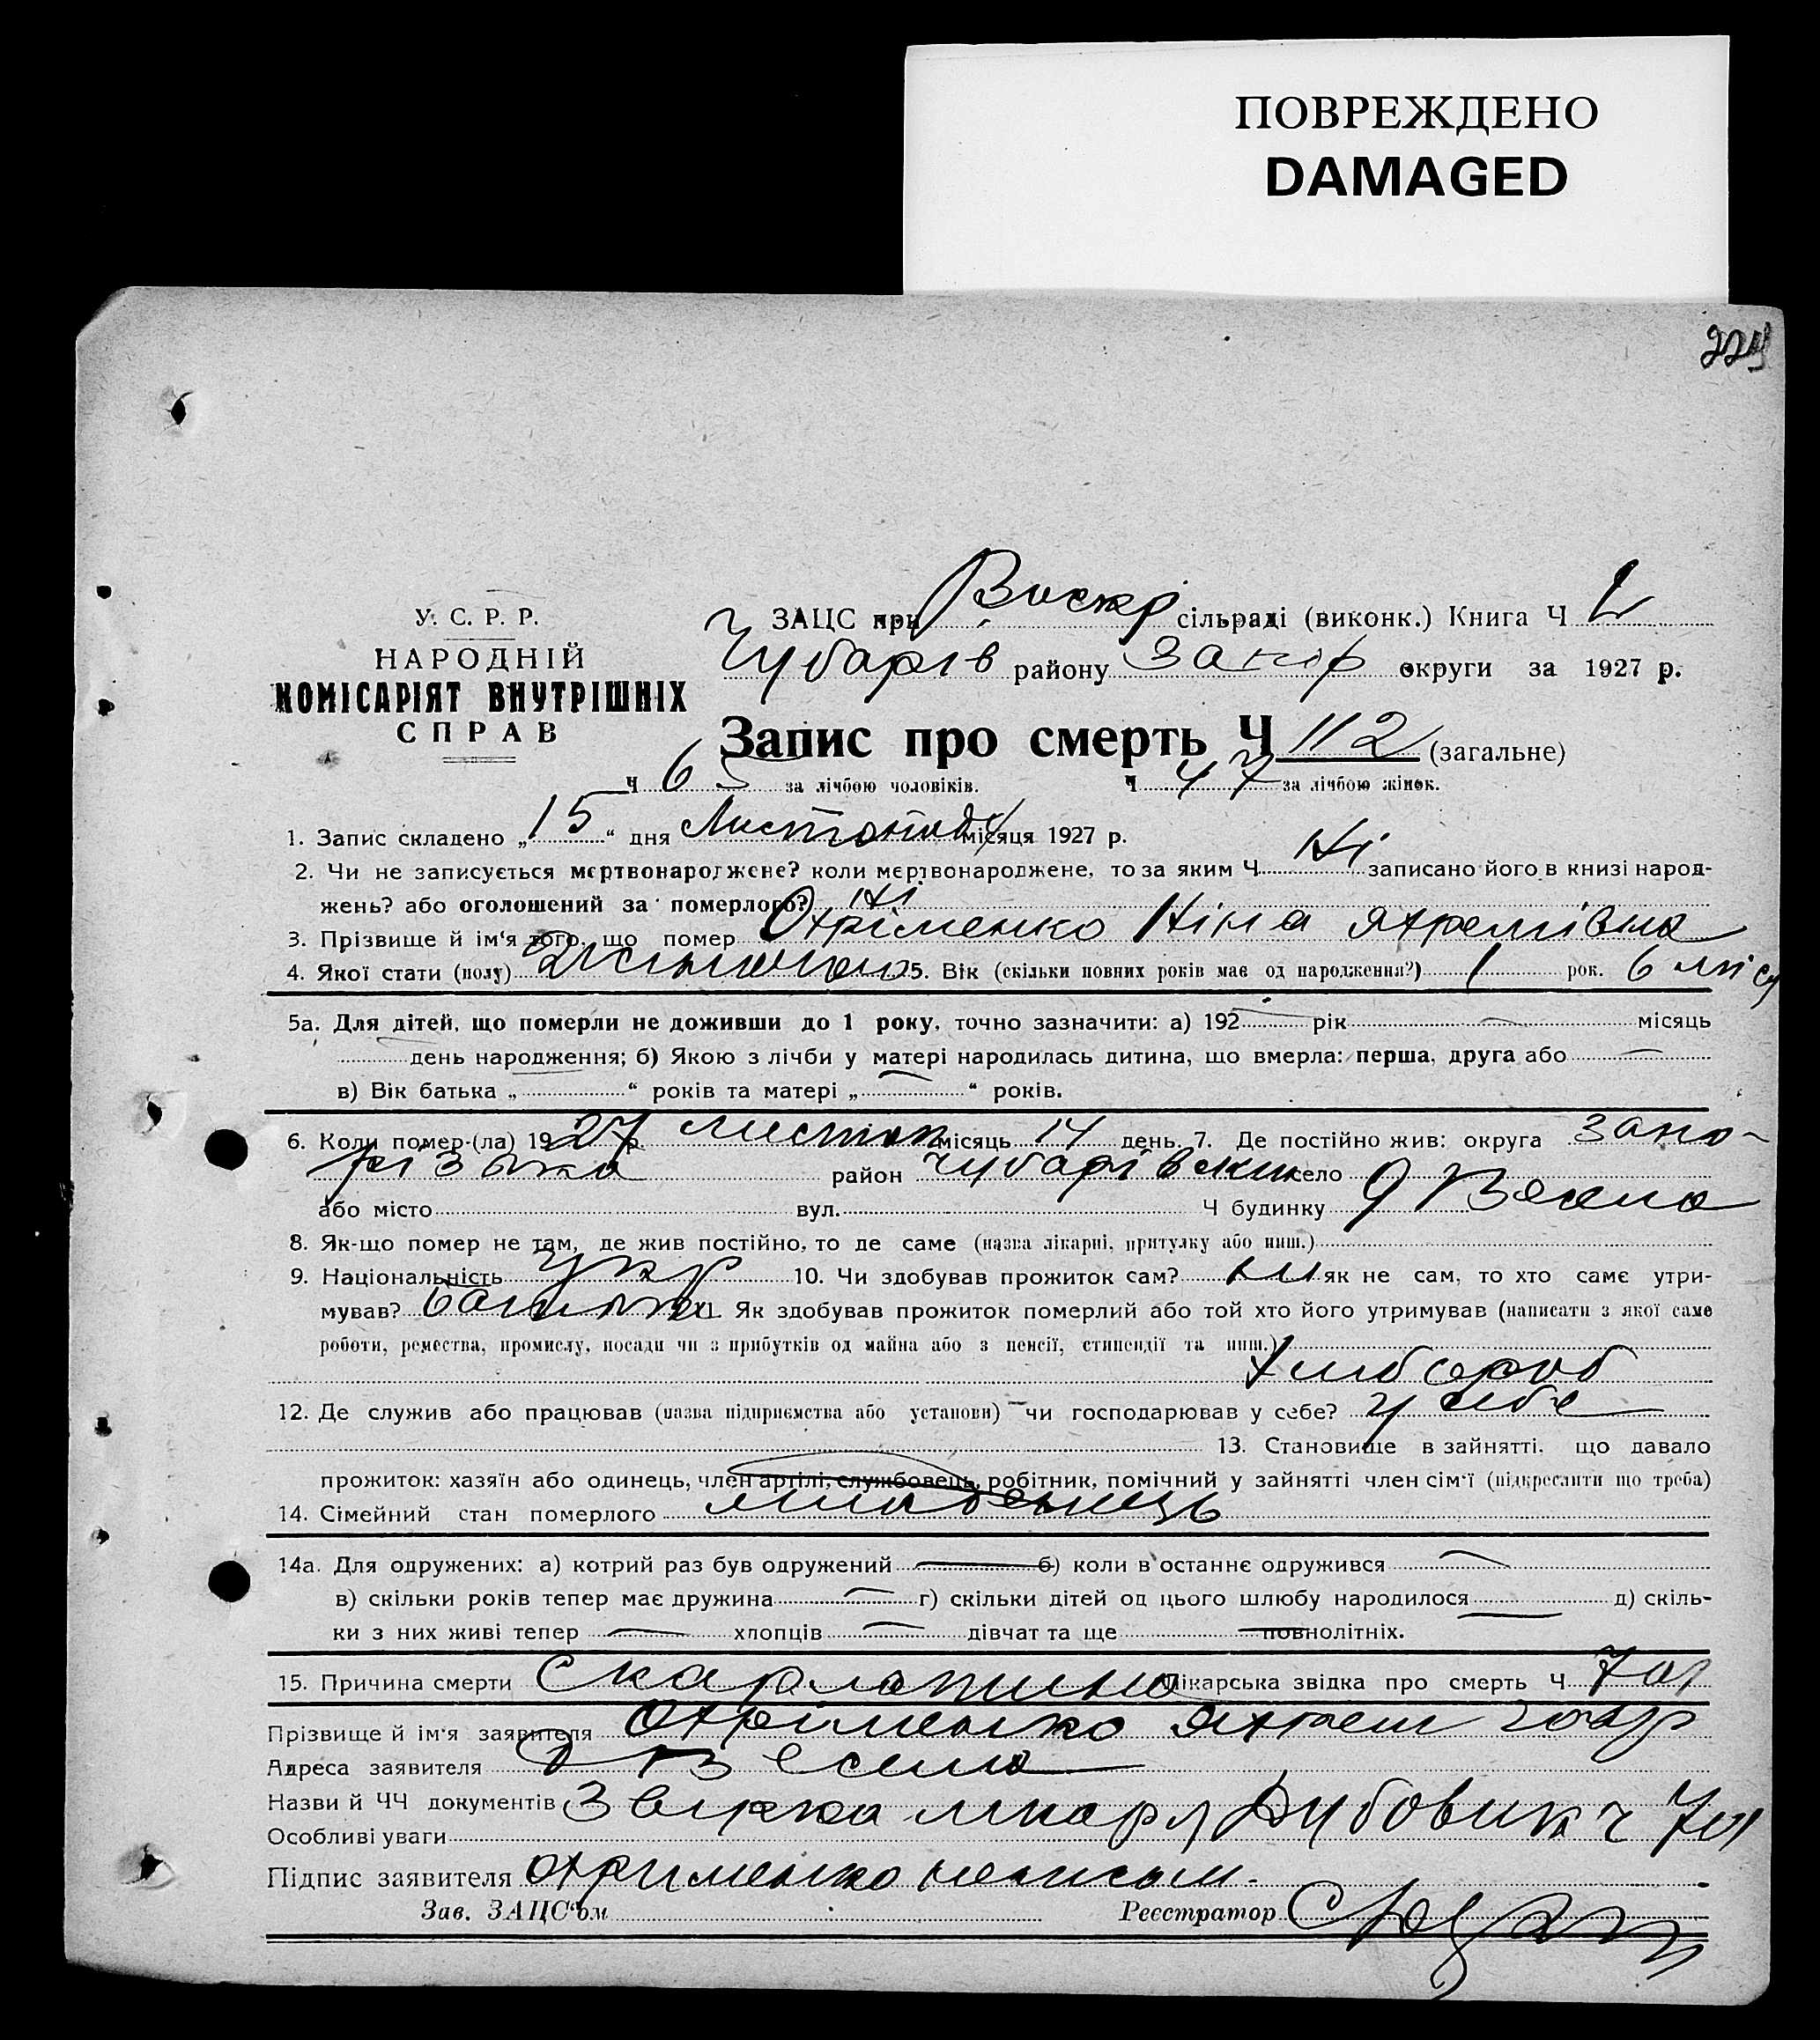 ПОВРЕЖДЕНО
DAMAGED
У. С. Р. Р.
НАРОДНІЙ
КОМІСАРІЯТ ВНУТРІШНІХ
СПРАВ
ЗАЦС при Воскр сільраді (виконк.) Книга Ч
Чубарів району Запор округи за 1927 р.
Запис про смерть Ч 112 (загальне)
Ч 65 за лічбою чоловіків. Ч 47 за лічбою жінок.
1. Запис складено „15“ дня Листопаду місяця 1927 р.
2. Чи не записується мертвонароджене? коли мертвонароджене, то за яким Ч Ні записано його в книзі народ-
жень? або оголошений за померлого? Ні
3. Прізвище й ім‘я того, що помер Охріменко Ніна Яхремівна
4. Якої стати (полу) 5. Вік (скільки повних років має од народження?) 1 рок. 6 міся
5а. Для дітей, що померли не доживши до 1 року, точно зазначити: а) 192 рік місяць
день народження; б) Якою з лічби у матері народилась дитина, що вмерла: перша, друга або
в) Вік батька „ “ років та матері „ “ років.
6. Коли помер-(ла) 1927 р. листоп місяць 14 день. 7. Де постійно жив: округа Запо-
різька район Чубарівськи село
або місто вул. Ч будинку Весела
8. Як-що помер не там, де жив постійно, то де саме (назва лікарні, притулку або инш.)
9. Національність Укр 10. Чи здобував прожиток сам? ні як не сам, то хто саме утри-
мував? батько 11. Як здобував прожиток померлий або той хто його утримував (написати з якої саме
роботи, ремества, промислу, посади чи з прибутків од майна або з пенсії, стипендії та инш.)
хлібороб
12. Де служив або працював (назва підприємства або установи) чи господарював у себе? у себе
13. Становище в зайнятті, що давало
прожиток: хазяїн або одинець, член артілі, службовець, робітник, помічний у зайнятті член сім‘ї (підкреслити що треба)
14. Сімейний стан померлого младенець
14а. Для одружених: а) котрий раз був одружений б) коли в останнє одружився
в) скільки років тепер має дружина г) скільки дітей од цього шлюбу народилося д) скіль-
ки з них живі тепер хлопців дівчат та ще повнолітніх.
15. Причина смерти Скарлатина Лікарська звідка про смерть Ч 701
Прізвище й ім‘я заявителя Охріменко Яхрем
Адреса заявителя Весела
Назви й ЧЧ документів Звідка лікаря Дубовик ч 701
Особливі уваги
Підпис заявителя Охрименко неписьм.
Зав. ЗАЦС‘ом Реєстратор